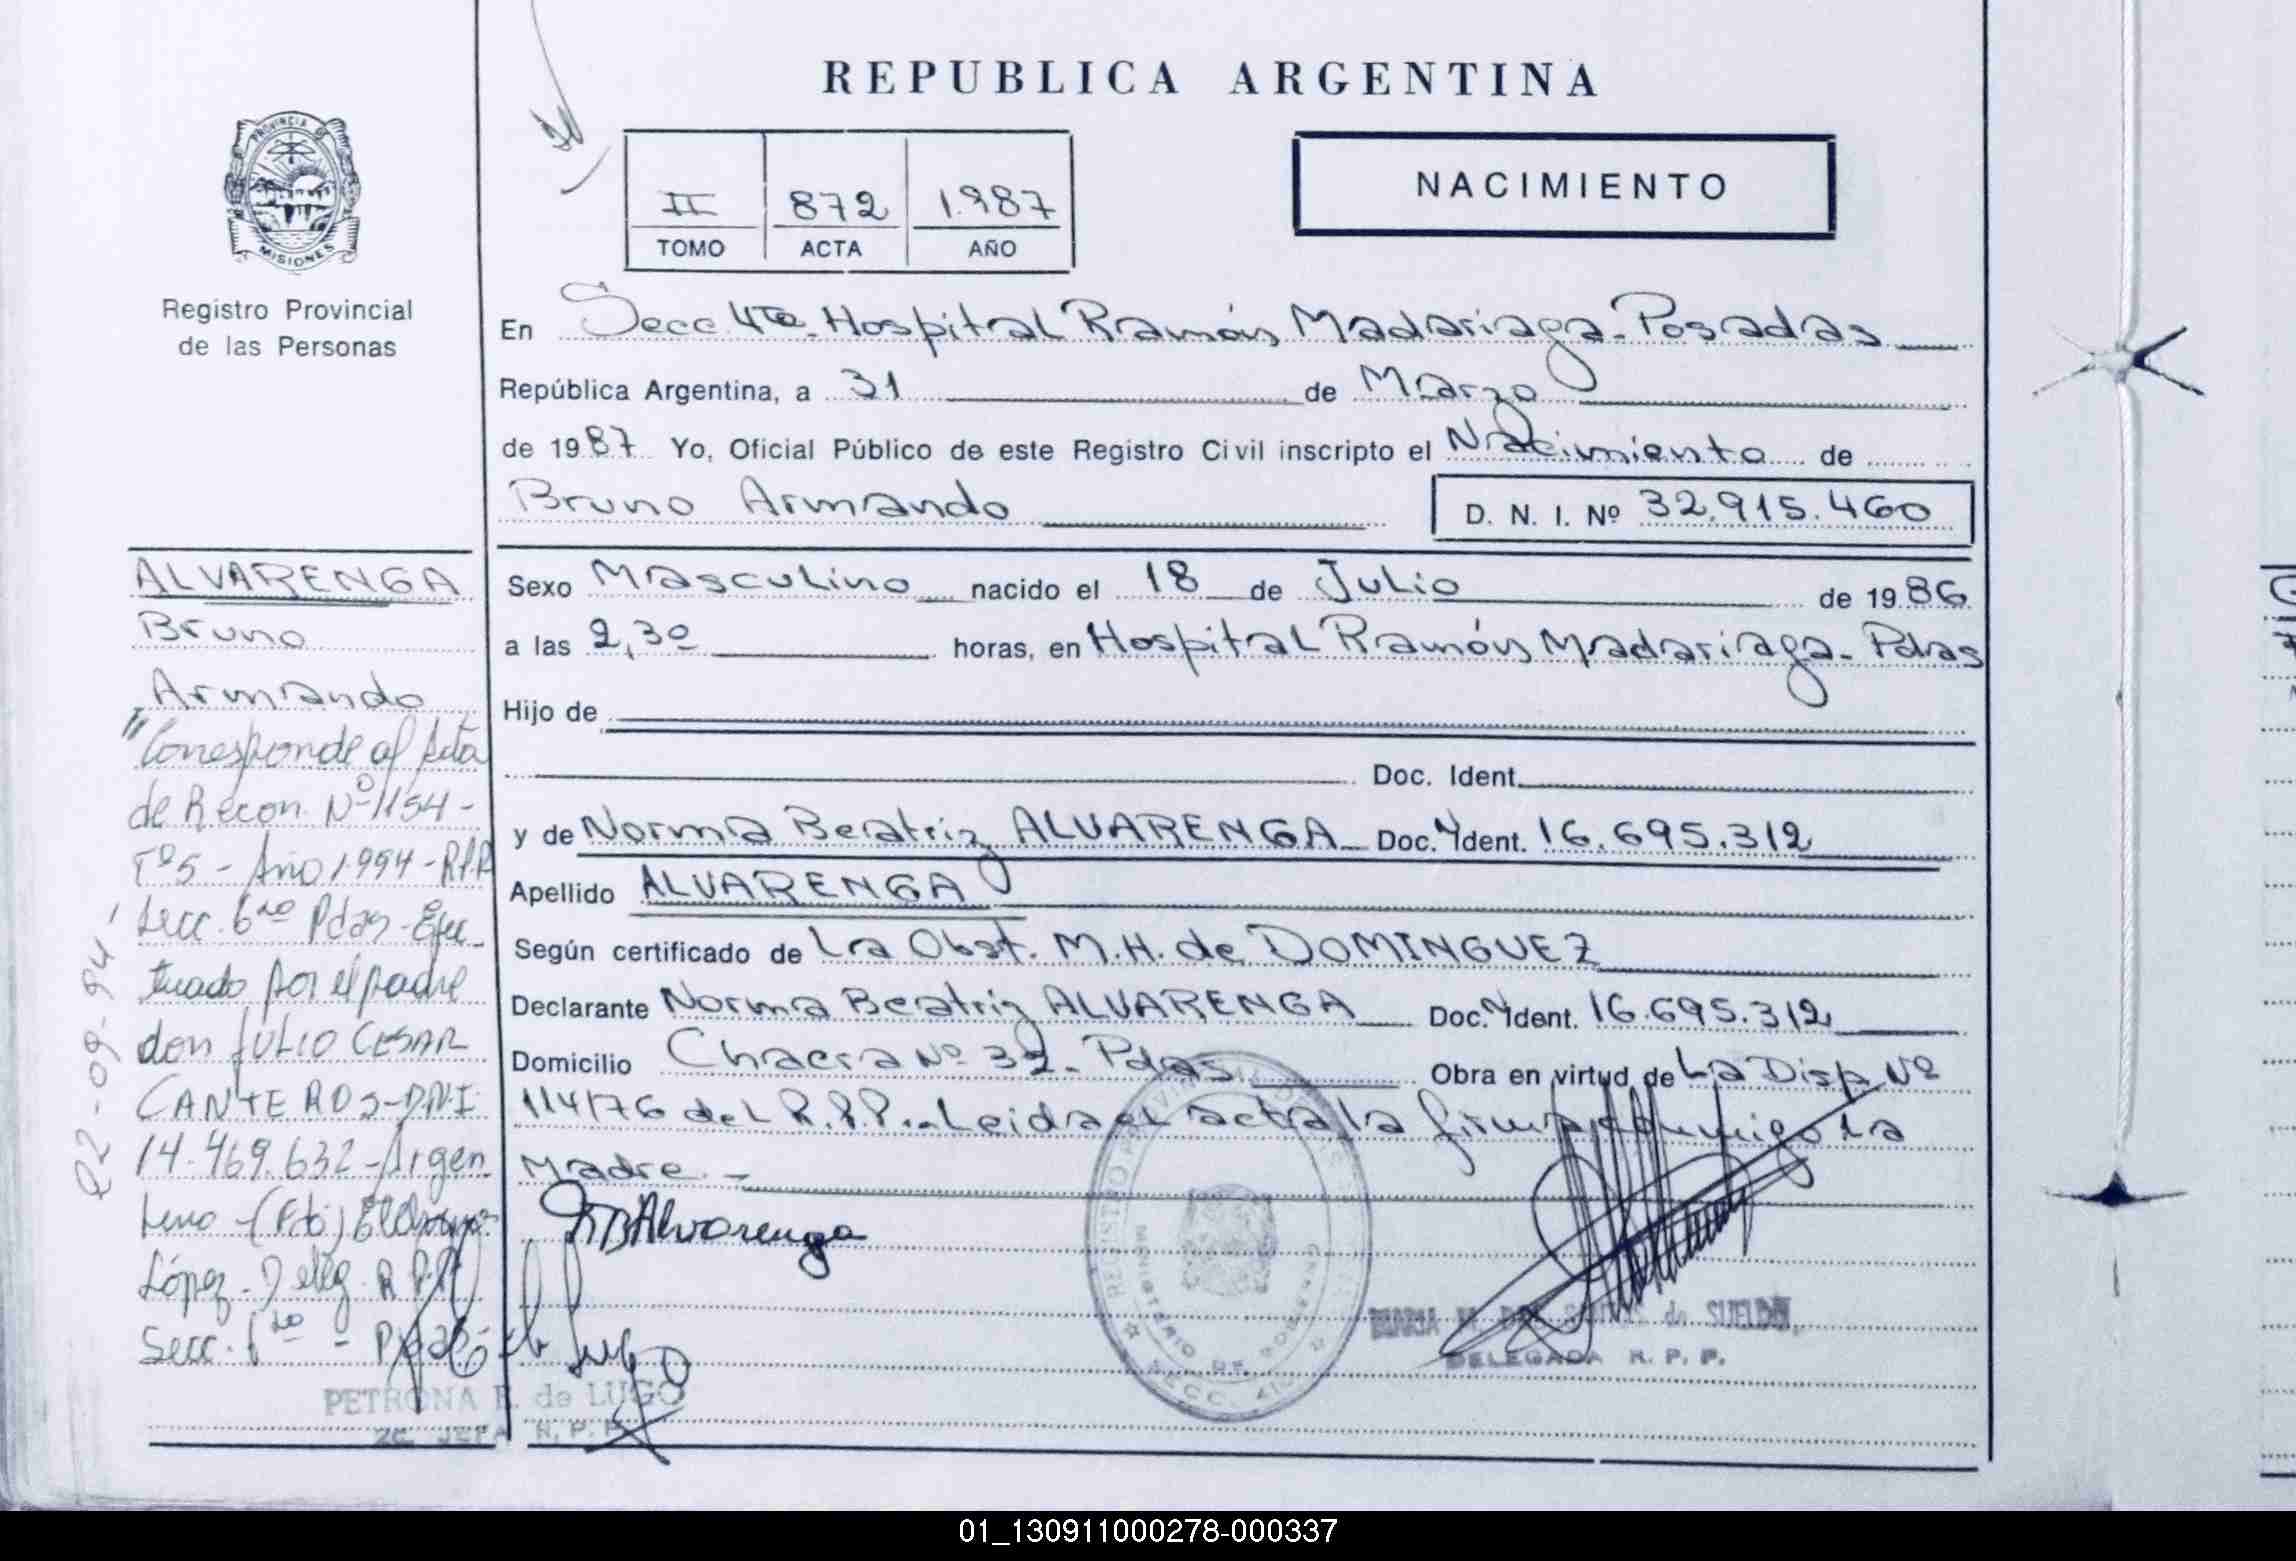 REPUBLICA ARGENTINA
PROVINCIA DE
MISIONES
Registro Provincial
de las Personas
II 872 1.987
TOMO ACTA AÑO
NACIMIENTO
En Secc. 4ta. Hospital Ramón Madariaga - Posadas
República Argentina, a 31 de Marzo
de 1987 Yo, Oficial Público de este Registro Civil inscripto el Nacimiento de
Bruno Armando
D. N. I. Nº 32.915.460
Sexo Masculino nacido el 18 de Julio de 1986
a las 2,30 horas, en Hospital Ramón Madariaga - Pdas
Hijo de
Doc. Ident.
y de Norma Beatriz ALVARENGA Doc. Ident. 16.695.312
Apellido ALVARENGA
Según certificado de La Obst. M.H. de DOMINGUEZ
Declarante Norma Beatriz ALVARENGA Doc. Ident. 16.695.312
Domicilio Chacra Nº 32 - Pdas Obra en virtud de La Disp. Nº
114/76 del R.P.P. - Leida el acta la firma conmigo la
Madre. -
NBAlvarenga
ALVARENGA
Bruno
Armando
"Corresponde al Acta
de Recon. Nº 1154 -
Tº 5 - Año 1994 - R.P.P
Secc. 6ta Pdas - Efec-
tuado por el padre
don JULIO CESAR
CANTEROS - D.N.I.
14.469.632 - Argen
tino - (Fdo)
López - Deleg. R.P.P.
Secc. 6ta - Pdas -
02-09-94-
PETRONA E. de LUGO
JEFA R. P. P.
REGISTRO
MINISTERIO DE GOBIERNO
SECC. 4ta
de SUELDO
DELEGADA R. P. P.
01_130911000278-000337